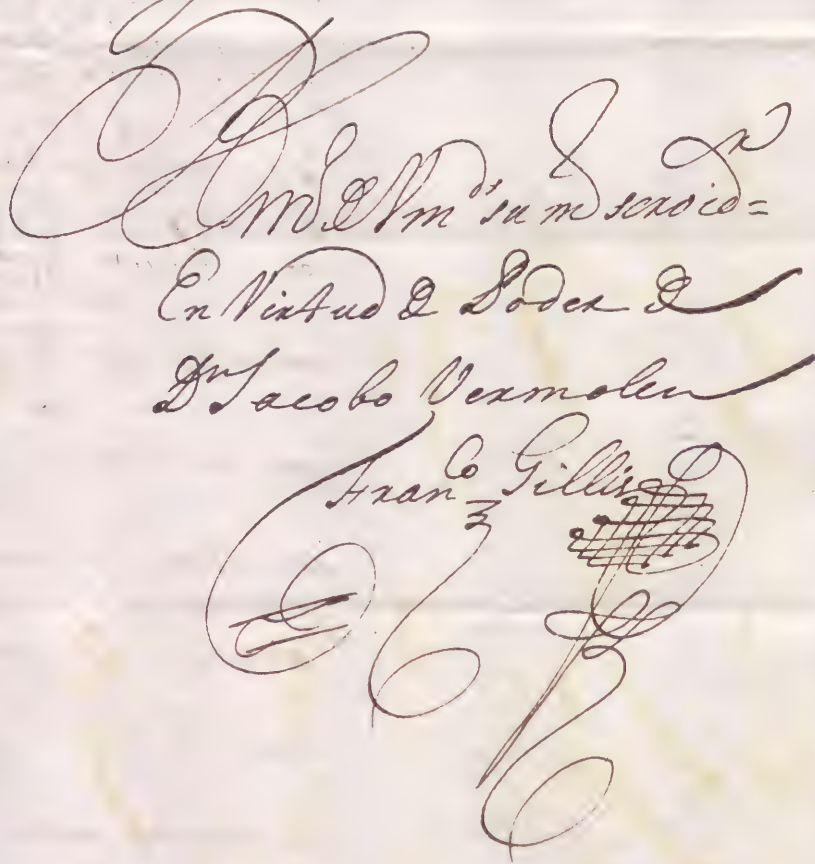 BLM de Vmd su mr servidr =
En Virtud de Poder de
Dn Jacobo Vermolen
Franco Gillis